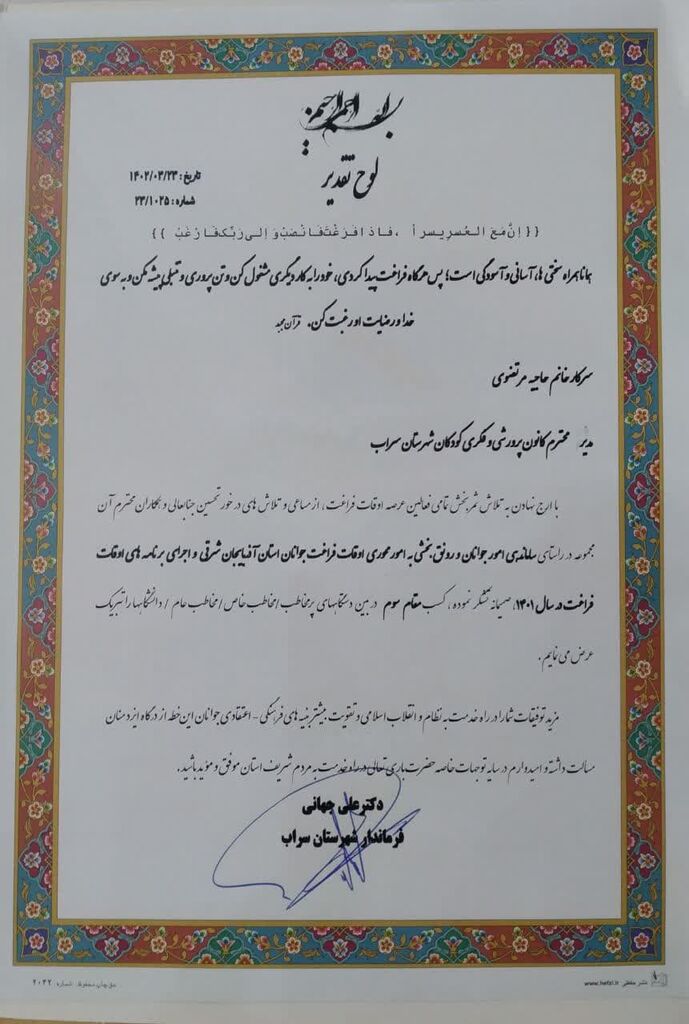 بسم الله الرحمن الرحیم
لوح تقدیر
تاریخ: ۱۴۰۲/۰۳/۲۳
شماره: ۲۳/۱۰۲۵
{{ اِنَّ مَعَ العُسرِ یسراً ، فَاذا فَرَغتَ فَانصَبْ وَ اِلی رَبِّکَ فَارغَبْ }}
همانا همراه سختی ها، آسانی و آسودگی است؛ پس هرگاه فراغت پیدا کردی، خود را به کار دیگری مشغول کن و تن پروری و تنبلی پیشه مکن و به سوی
خدا و رضایت او رغبت کن. قرآن مجید
سرکار خانم حاجیه مرتضوی
مدیر محترم کانون پرورشی و فکری کودکان شهرستان سراب
با ارج نهادن به تلاش ثمربخش تمامی فعالین عرصه اوقات فراغت، از مساعی و تلاش های در خور تحسین جنابعالی و همکاران محترم آن
مجموعه در راستای ساماندهی امور جوانان و رونق بخشی به امور محوری اوقات فراغت جوانان استان آذربایجان شرقی و اجرای برنامه های اوقات
فراغت در سال ۱۴۰۱، صمیمانه تشکر نموده، کسب مقام سوم در بین دستگاههای پرمخاطب/مخاطب خاص/مخاطب عام / دانشگاهها را تبریک
عرض می نمایم.
مزید توفیقات شما را در راه خدمت به نظام و انقلاب اسلامی و تقویت بیشتر بنیه های فرهنگی - اعتقادی جوانان این خطه از درگاه ایزد منان
مسالت داشته و امیدوارم در سایه توجهات خاصه حضرت باری تعالی در راه خدمت به مردم شریف استان موفق و مؤید باشید.
دکتر علی جهانی
فرماندار شهرستان سراب
نشر حافظی www.hefzi.ir
حق چاپ محفوظ شماره ۲۰۲۲